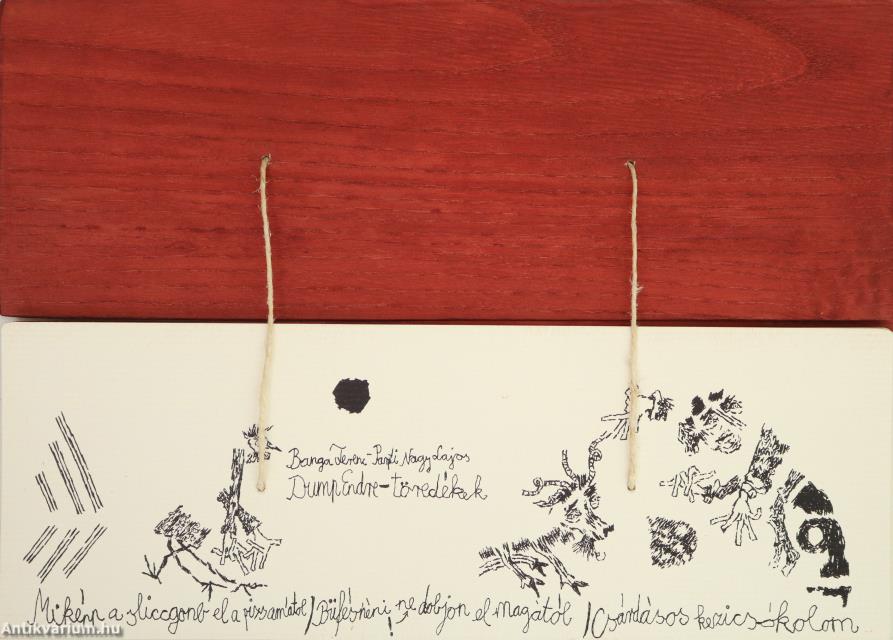 Banga Ferenc-Parti Nagy Lajos
DumpEndre-töredékek
Miképp a sliccgomb el a pizsamától / Büfésnéni, ne dobjon el magától / Csárdásos kezicsókolom
Antikvarium.hu